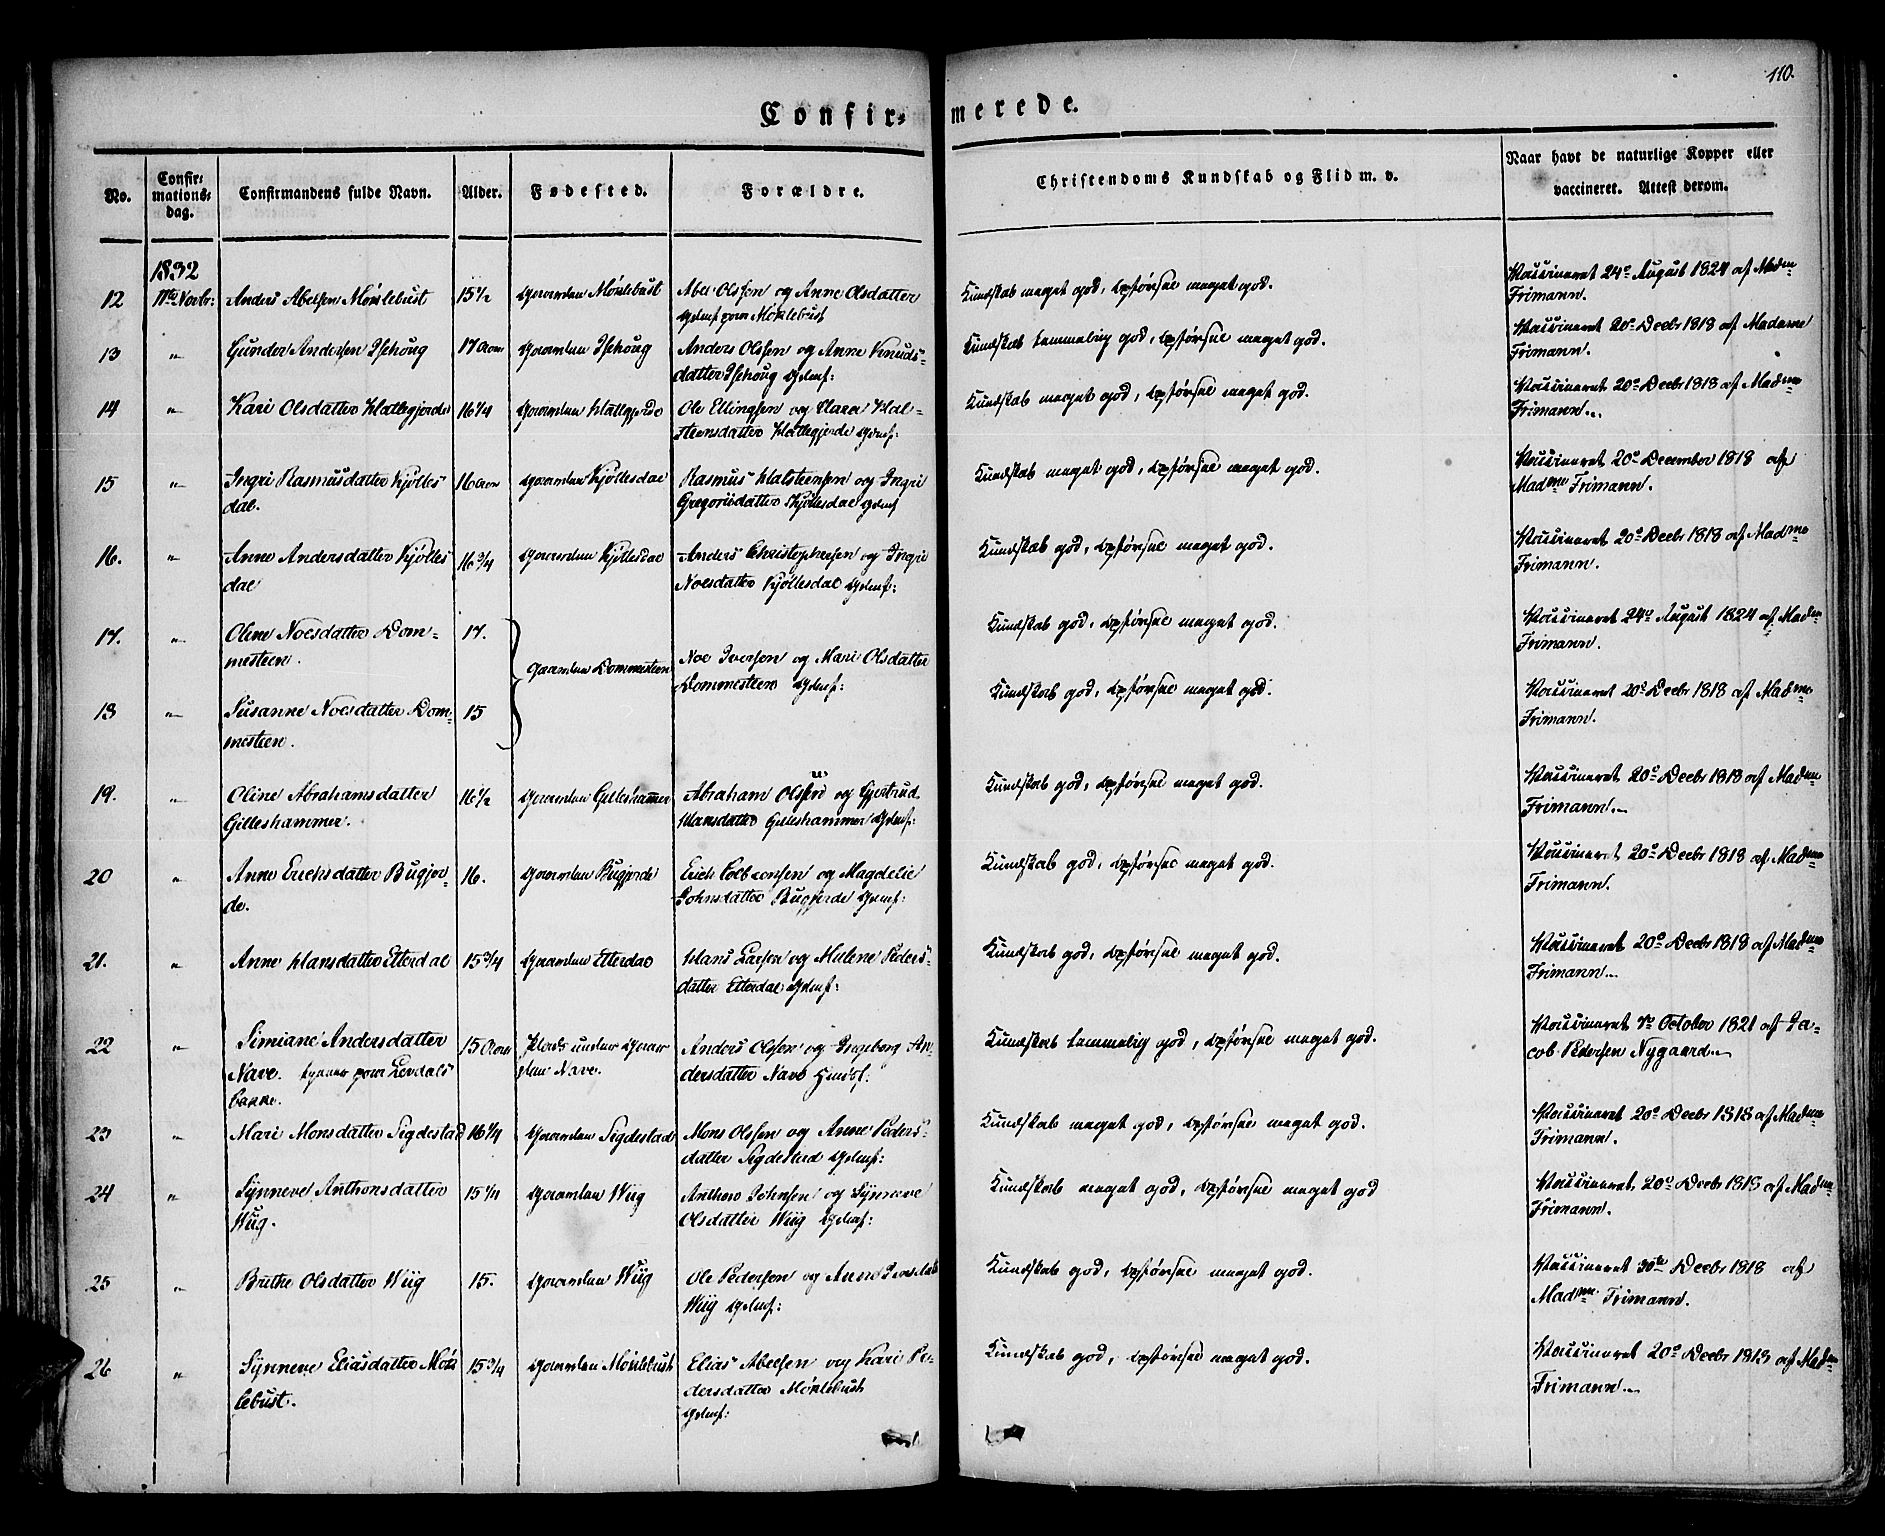 110.
Confir- merede.
No.
Confir-
mations-
dag.
Confirmandens fulde Navn.
Alder.
Fødested.
Forældre.
Christendoms Kundskab og Flid m. v.
Naar havt de naturlige Kopper eller
vaccineret. Attest derom.
1832
12 11te Novbr: Anders Abelsen Möklebust 15½ Gaarden Möklebust Abel Olssen og Anne Olsdatter Kundskab meget god, Opførsel meget god. Vaccineret 24de August 1824 af Madme
Möklebust Frimann.
13 " Gunder Andersen Isehoug 17 Aar Gaarden Isehoug Anders Olssen og Anne Knuds- Kundskab temmelig god, Opførsel meget god. Vaccineret 20de Decbr 1818 af Madame
datter Isehoug Frimann.
14 " Kari Olsdatter Hatlegjerde 16¼ Gaarden Hatlegjerde Ole Ellingsen og Clara Hal- Kundskab meget god, Opførsel meget god. Vaccineret 20de Decbr 1818 af Madme
steensdatter Hatlegjerde Frimann.
15 " Ingri Rasmusdatter Kjölles 16 Aar Gaarden Kjöllesdal Rasmus Halsteensen og Ingri Kundskab meget god, Opførsel meget god. Vaccineret 20de December 1818 af
dal. Gregoriidatter Kjöllesdal Madme Frimann.
16. " Anne Andersdatter Kjölles 16¾ Gaarden Kjöllesdal Anders Christophersen og Ingri Kundskab god, Opførsel meget god. Vaccineret 20de Decbr 1818 af Madme
dal Noesdatter Kjöllesdal Frimann.
17. " Oline Noesdatter Dom- 17. Kundskab god, Opførsel meget god. Vaccineret 24de August 1824 af Madme
mesteen. Gaarden Dommesteen Noe Iversen og Mari Olsdatter Frimann.
Dommesteen
18 " Susanne Noesdatter Dom- 15 Kundskab god, Opførsel meget god. Vaccineret 20de Decbr 1818 af Madme
mesteen. Frimann.
19. " Oline Abrahamsdatter 16½ Gaarden Gilleshammer Abraham Olssen og Gjertrud Kundskab god, Opførsel meget god. Vaccineret 20de Decbr 1818 af Madme
Gilleshammer. Hansdatter Gilleshammer Frimann.
20 " Anne Erichsdatter Bugjer- 16. Gaarden Bugjerde Erich Colbeensen og Magdelie Kundskab god, Opførsel meget god. Vaccineret 20de Decbr 1818 af Madme
de. Johnsdatter Bugjerde Frimann.
21. " Anne Hansdatter Etterdal 15¾ Gaarden Etterdal Hans Larsen og Malene Peders- Kundskab god, Opførsel meget god. Vaccineret 20de Decbr 1818 af Madme
datter Etterdal Frimann.
22 " Simiane Andersdatter 15 Aar Plads under Gaar- Anders Olssen og Ingeborg An- Kundskab temmelig god, Opførsel meget god. Vaccineret 7de October 1821 af Ja-
Nave. tjener paa Levdals den Nave. dersdatter Nave cob Pedersen Nygaard
bakke.
23 " Mari Monsdatter Sigdestad 16¼ Gaarden Sigdestad Mons Olssen og Anne Peders- Kundskab meget god, Opførsel meget god. Vaccineret 20de Decbr 1818 af Madme
datter Sigdestad Frimann.
24 " Synneve Anthonsdatter 15¼ Gaarden Wiig Anthon Johnsen og Synneve Kundskab meget god, Opførsel meget god Vaccineret 20de Decbr 1818 af Madme
Wiig. Olsdatter Wiig Frimann.
25 " Brithe Olsdatter Wiig 15. Gaarden Wiig Ole Pedersen og Anne Kundskab god, Opførsel meget god. Vaccineret 30te Decbr 1818 af
Wiig Madme Frimann.
26 " Synneve Eliasdatter Mök 15¾ Gaarden Möklebust Elias Abelsen og Kari Pe- Kundskab god, Opførsel meget god. Vaccineret 20de Decbr 1818 af Madme
lebust. dersdatter Möklebust Frimann.